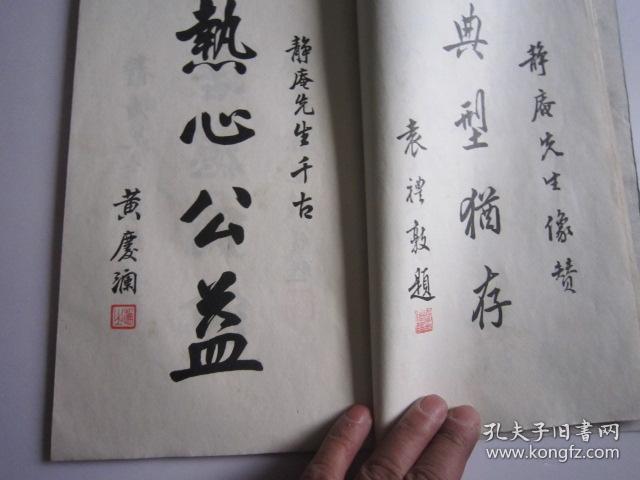 静庵先生像赞
典型猶存
袁禮敦題
静庵先生千古
熱心公益
黄慶澜
孔夫子旧书网
www.kongfz.com